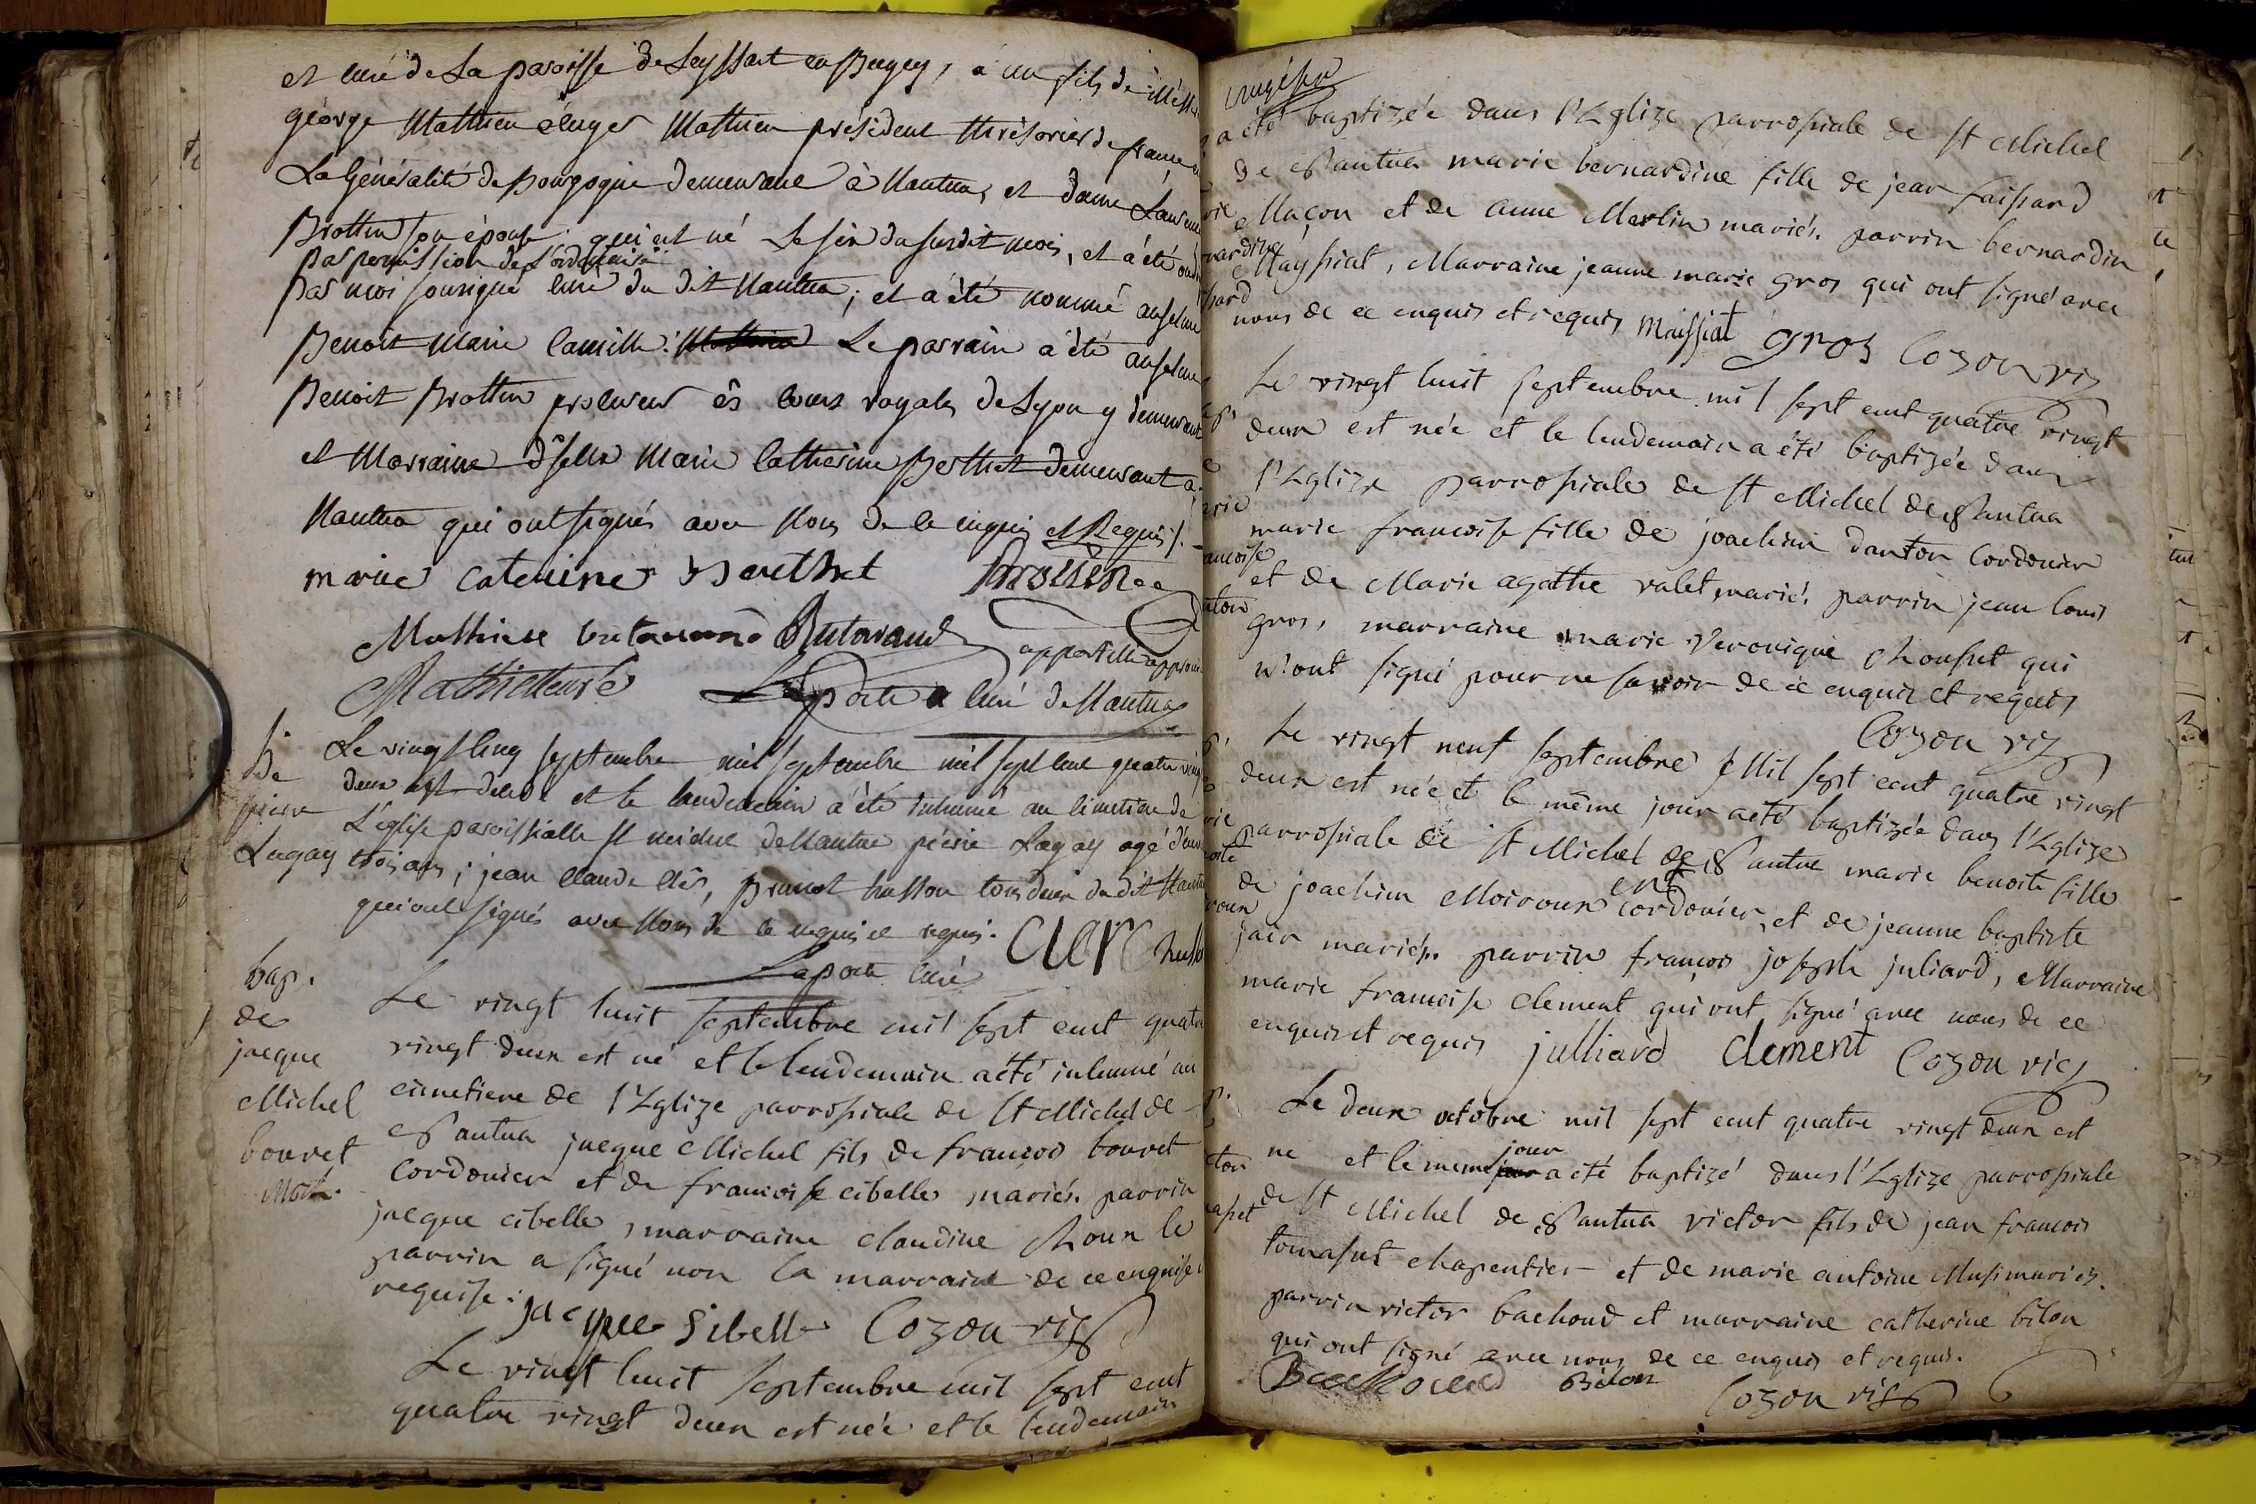 et curé de La paroisse de Leyssart en Bugey, a un fils de
géorge Mathieu Mathieu président thrésorier de france
La Généralité de Bourgogne demeurant à Nantua, et dame
Brottin son épouse qui est né Le six du susdit mois, et a été
par permission de l'ordinaire
par moi soussigné curé du dit Nantua; et a été nommé anselme
Benoit Marie Camille. Le parrain a été anselme
Benoit Brottin procureur ès cours royales de Lyon y demeurant
et Marraine dselle Marie Catherine Berthet demeurant à
Nantua qui ont signés avec Nous de ce enquis et Requis /.
marie caterine Berthet
Mathieu
Laporte curé de Nantua
Le vingt cinq septembre mil septembre mil sept cent quatre vingt
deux est décédé et le lendemain a été inhumé au cimetière de
L'église paroissialle st michel de Nantua pierre Lugay agé d'environ
trois ans; jean claude clêr, du dit Nantua
qui ont signés avec Nous de ce enquis et requis.
Clerc
Laporte curé
de
pierre
Lugay
bap.
de
jacque
Michel
bouvet
Mort.
Le vingt huit septembre mil sept cent quatre
vingt deux est né et le lendemain a été inhumé au
cimetiere de l'Eglize parrossiale de St Michel de
Nantua jacque Michel fils de francois bouvet
Cordonier et de francoise cibelle mariés. parrin
jacque cibelle, marraine claudine le
parrin a signé non la marraine de ce enquise
requise.
jacque Sibelle Cozon vic
Le vingt huit septembre mil sept cent
quatre vingt deux est née et le lendemain
a été baptizée dans l'Eglize parrossiale de St Michel
de Nantua marie bernardine fille de jean faissard
Maçon et de anne Merlin mariés. parrin bernardin
Mayssiat, Marraine jeanne marie gros qui ont signé avec
nous de ce enquis et requis Maissiat gros Cozon vic
Le vingt huit septembre mil sept cent quatre vingt
deux est née et le lendemain a été baptizée dans
l'Eglize parrossiale de St Michel de Nantua
marie francoise fille de joachim danton Cordonier
et de Marie agathe valet mariés. parrin jean louis
gros, marraine marie Veronique qui
n'ont signé pour ne savoir de ce enquis et requis
Cozon vic
Le vingt neuf septembre Mil sept cent quatre vingt
deux est née et le même jour a été baptizée dans l'Eglize
parrossiale de St Michel de Nantua marie benoite fille
de joachim Moiroux cordonier, et de jeanne baptiste
jaix mariés. parrin francois joseph juliard, Marraine
marie francoise Clement qui ont signé avec nous de ce
enquis et requis julliard Clement Cozon vic
Le deux octobre mil sept cent quatre vingt deux est
né et le meme jour a été baptizé dans l'Eglize parrossiale
de St Michel de Nantua victor fils de jean francois
tomasset chapentier et de marie antoine mariés.
parrin victor bachoud et marraine catherine bilon
qui ont signé avec nous de ce enquis et requis.
Bachoud Bilon Cozon vic